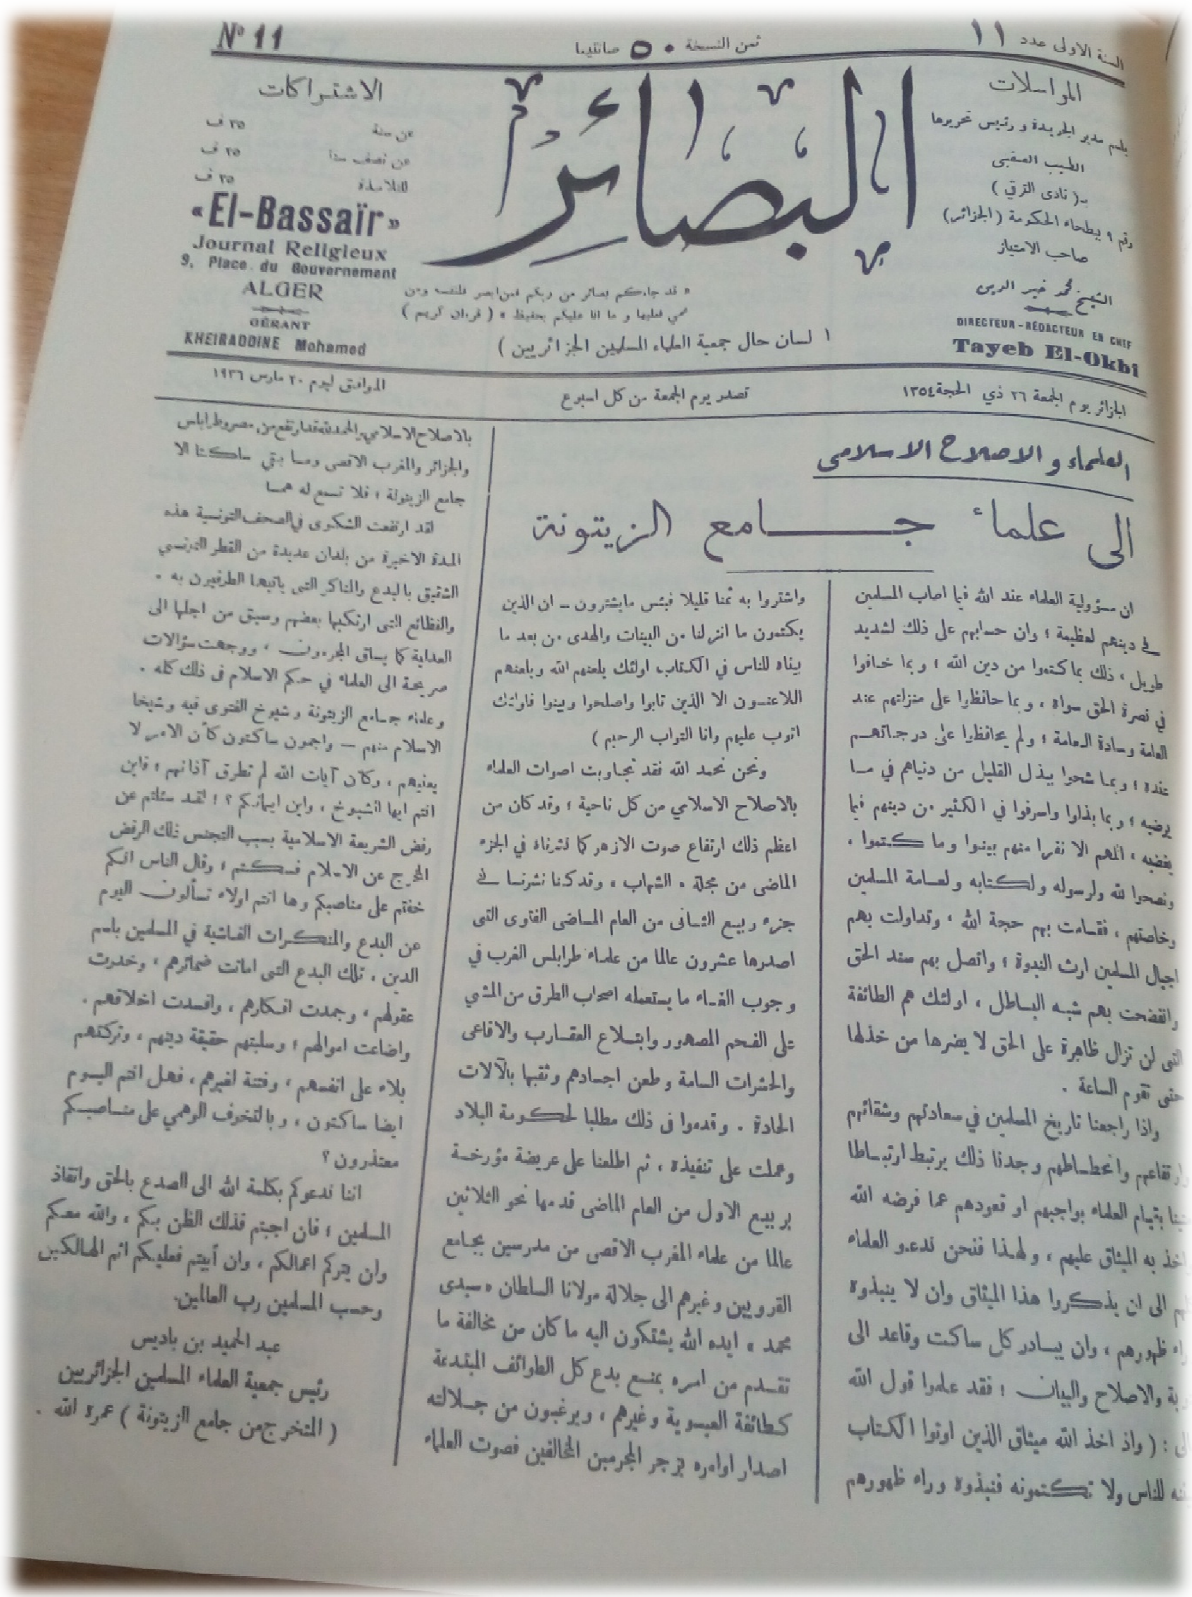 السنة الاولى عدد ١١
ثمن النسخة ٥٠ صانتيما
Nº 11
المواسلات
باسم مدير الجريدة ورئيس تحريرها
الطيب العقبي
بـ( نادى الترقي )
رقم ٩ ببطحاء الحكومة (الجزائر)
صاحب الامتياز
الشيخ محمد خير الدين
DIRECTEUR-RÉDACTEUR EN CHEF
Tayeb El-Okbi
البصائر
« قد جاءكم بصائر من ربكم فمن ابصر فلنفسه ومن
عمي فعليها وما انا عليكم بحفيظ » ( قرءان كريم )
( لسان حال جمعية العلماء المسلمين الجزائريين )
الاشتراكات
عن سنة ٣٥ ف
عن نصف سنة ٢٥ ف
للتلامذة ٢٥ ف
«El-Bassaïr»
Journal Religieux
9, Place du Gouvernement
ALGER
GÉRANT
KHEIRADDINE Mohamed
الجزائر يوم الجمعة ٢٦ ذي الحجة ١٣٥٤
تصدر يوم الجمعة من كل اسبوع
الموافق ليوم ٢٠ مارس ١٩٣٦
العلماء والاصلاح الاسلامى
الى علماء جامع الزيتونة
ان مسؤولية العلماء عند الله فيما اصاب المسلمين
في دينهم لعظيمة ؛ وان حسابهم على ذلك لشديد
طويل ، ذلك بما كتموا من دين الله ؛ وبما خافوا
في نصرة الحق سواه ، وبما حافظوا على منزلتهم عند
العامة وسادة العامة ؛ ولم يحافظوا على درجاتهم
عنده ؛ وبما شحوا ببذل القليل من دنياهم في ما
يرضيه ؛ وبما بذلوا واسرفوا في الكثير من دينهم فيما
يغضبه ، اللهم الا نفرا منهم بينوا وما كتموا ،
ونصحوا لله ولرسوله ولكتابه ولعامة المسلمين
وخاصتهم ، فقامت بهم حجة الله ، وتداولت بهم
اجيال المسلمين ارث النبوة ؛ واتصل بهم سند الحق
وانفضحت بهم شبه الباطل ، اولئك هم الطائفة
التى لن تزال ظاهرة على الحق لا يضرها من خذلها
حتى تقوم الساعة .
واذا راجعنا تاريخ المسلمين في سعادتهم وشقائهم
وارتفاعهم وانحطاطهم وجدنا ذلك يرتبط ارتباطا
بقيام العلماء بواجبهم او قعودهم عما فرضه الله
واخذ به الميثاق عليهم ، ولهذا فنحن ندعو العلماء
الى ان يذكروا هذا الميثاق وان لا ينبذوه
ظهورهم ، وان يبادر كل ساكت وقاعد الى
والاصلاح والبيان ؛ فقد علموا قول الله
: ( واذ اخذ الله ميثاق الذين اوتوا الكتاب
للناس ولا تكتمونه فنبذوه وراء ظهورهم
واشتروا به ثمنا قليلا فبئس ما يشترون ـ ان الذين
يكتمون ما انزلنا من البينات والهدى من بعد ما
بيناه للناس في الكتاب اولئك يلعنهم الله ويلعنهم
اللاعنون الا الذين تابوا واصلحوا وبينوا فاولئك
اتوب عليهم وانا التواب الرحيم )
ونحن نحمد الله فقد تجاوبت اصوات العلماء
بالاصلاح الاسلامي من كل ناحية ؛ وقد كان من
اعظم ذلك ارتفاع صوت الازهر كما نشرناه في الجزء
الماضى من مجلة « الشهاب » وقد كنا نشرنا في
جزء ربيع الثانى من العام الماضى الفتوى التى
اصدرها عشرون عالما من علماء طرابلس الغرب في
وجوب الغاء ما يستعمله اصحاب الطرق من المشي
على الفحم المصهور وابتلاع العقارب والافاعى
والحشرات السامة وطعن اجسادهم وثقبها بالآلات
الحادة ، وقدموا في ذلك مطلبا لحكومة البلاد
وعملت على تنفيذه ، ثم اطلعنا على عريضة مؤرخة
بربيع الاول من العام الماضى قدمها نحو الثلاثين
عالما من علماء المغرب الاقصى من مدرسين بجامع
القرويين وغيرهم الى جلالة مولانا السلطان « سيدى
محمد » ايده الله يشتكون اليه ما كان من مخالفة ما
تقدم من امره بمنع بدع كل الطوائف المبتدعة
كطائفة العيسوية وغيرهم ، ويرغبون من جلالته
اصدار اوامره بزجر المجرمين المخالفين فصوت العلماء
بالاصلاح الاسلامي والحمد لله قد ارتفع من مصر وطرابلس
والجزائر والمغرب الاقصى وما بقي ساكتا الا
جامع الزيتونة ؛ فلا تسمع له همسا
لقد ارتفعت الشكوى في الصحف التونسية هذه
المدة الاخيرة من بلدان عديدة من القطر التونسي
الشقيق بالبدع والمناكر التى ياتيها الطرقيون به .
والفظائع التى ارتكبها بعضهم وسيق من اجلها الى
العدالة كما يساق المجرمون ، ووجهت سؤالات
صريحة الى العلماء في حكم الاسلام فى ذلك كله .
وعلماء جامع الزيتونة وشيوخ الفتوى فيه وشيخا
الاسلام منهم — واجمون ساكتون كأن الامر لا
يعنيهم ، وكأن آيات الله لم تطرق آذانهم ؛ فاين
انتم ايها الشيوخ ، واين ايمانكم ؟ ! لقد سئلتم عن
رفض الشريعة الاسلامية بسبب التجنس ذلك الرفض
المخرج عن الاسلام فسكتم ؛ وقال الناس انكم
خفتم على مناصبكم وها انتم اولاء تسألون اليوم
عن البدع والمنكرات الفاشية في المسلمين باسم
الدين ، تلك البدع التى اماتت ضمائرهم ، وخدرت
عقولهم ، وجمدت افكارهم ، وافسدت اخلاقهم .
واضاعت اموالهم ؛ وسلبتهم حقيقة دينهم ، وتركتهم
بلاء على انفسهم ، وفتنة لغيرهم ، فهل انتم اليوم
ايضا ساكتون ، وبالتخوف الوهمي على مناصبكم
معتذرون ؟
اننا ندعوكم بكلمة الله الى الصدع بالحق وانقاذ
المسلمين ؛ فان اجبتم فذلك الظن بكم ، والله معكم
وان يتركم اعمالكم ، وان أبيتم فعليكم اثم الهالكين
وحسب المسلمين رب العالمين.
عبد الحميد بن باديس
رئيس جمعية العلماء المسلمين الجزائريين
( المتخرج من جامع الزيتونة ) عمره الله .